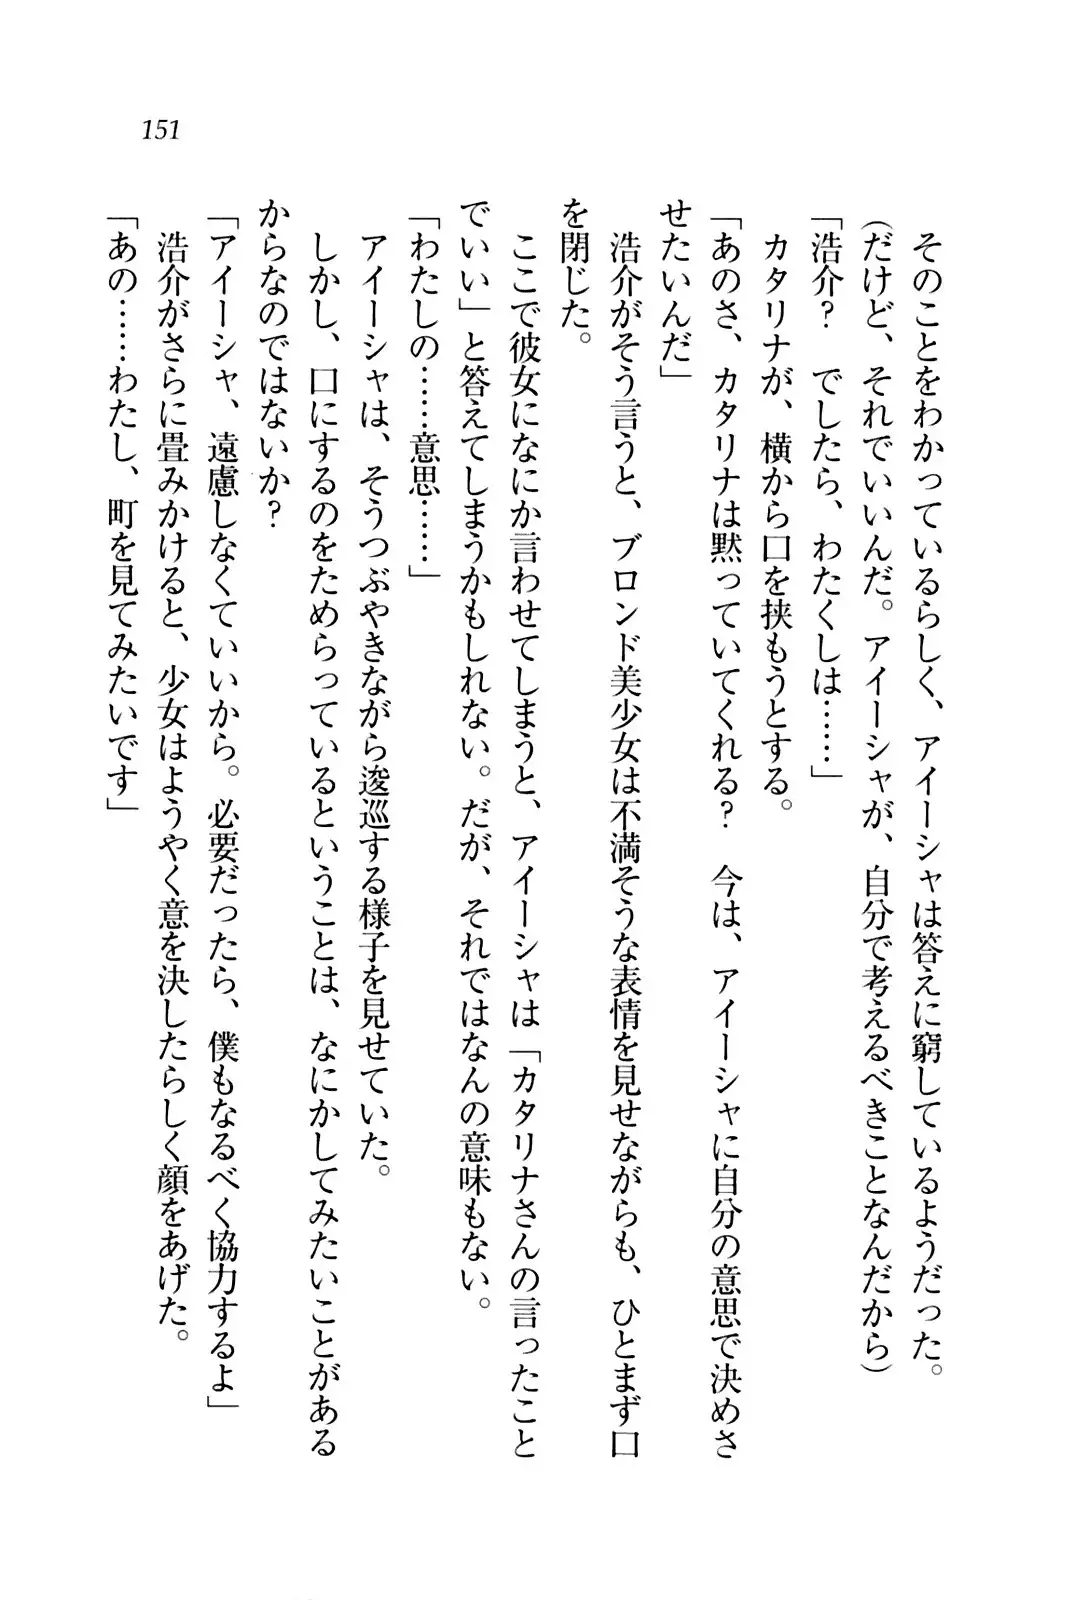 151
そのことをわかっているらしく、アイーシャは答えに窮しているようだった。
(だけど、それでいいんだ。アイーシャが、自分で考えるべきことなんだから)
「浩介？　でしたら、わたくしは……」
カタリナが、横から口を挟もうとする。
「あのさ、カタリナは黙っていてくれる？　今は、アイーシャに自分の意思で決めさ
せたいんだ」
浩介がそう言うと、ブロンド美少女は不満そうな表情を見せながらも、ひとまず口
を閉じた。
ここで彼女になにか言わせてしまうと、アイーシャは「カタリナさんの言ったこと
でいい」と答えてしまうかもしれない。だが、それではなんの意味もない。
「わたしの……意思……」
アイーシャは、そうつぶやきながら逡巡する様子を見せていた。
しかし、口にするのをためらっているということは、なにかしてみたいことがある
からなのではないか？
「アイーシャ、遠慮しなくていいから。必要だったら、僕もなるべく協力するよ」
浩介がさらに畳みかけると、少女はようやく意を決したらしく顔をあげた。
「あの……わたし、町を見てみたいです」